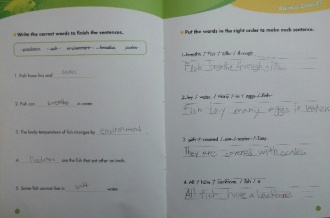 Write the correct words to finish the sentences.
1. Fish have fins and scales
2. Fish can breathe in water.
3. The body temperature of fish changes by environment
4. are the fish that eat other animals.
5. Some fish survive live in salt water.
Put the words in the right order to make each sentence.
1. breathe / Fish / gills / through
Fish breathe through gills.
2. lay / water / many / in / eggs / Fish
Fish lay many eggs in water
3. with / covered / are / scales / They
They are covered with scales
4. All / have / backbone / fish / a
All fish have a backbone